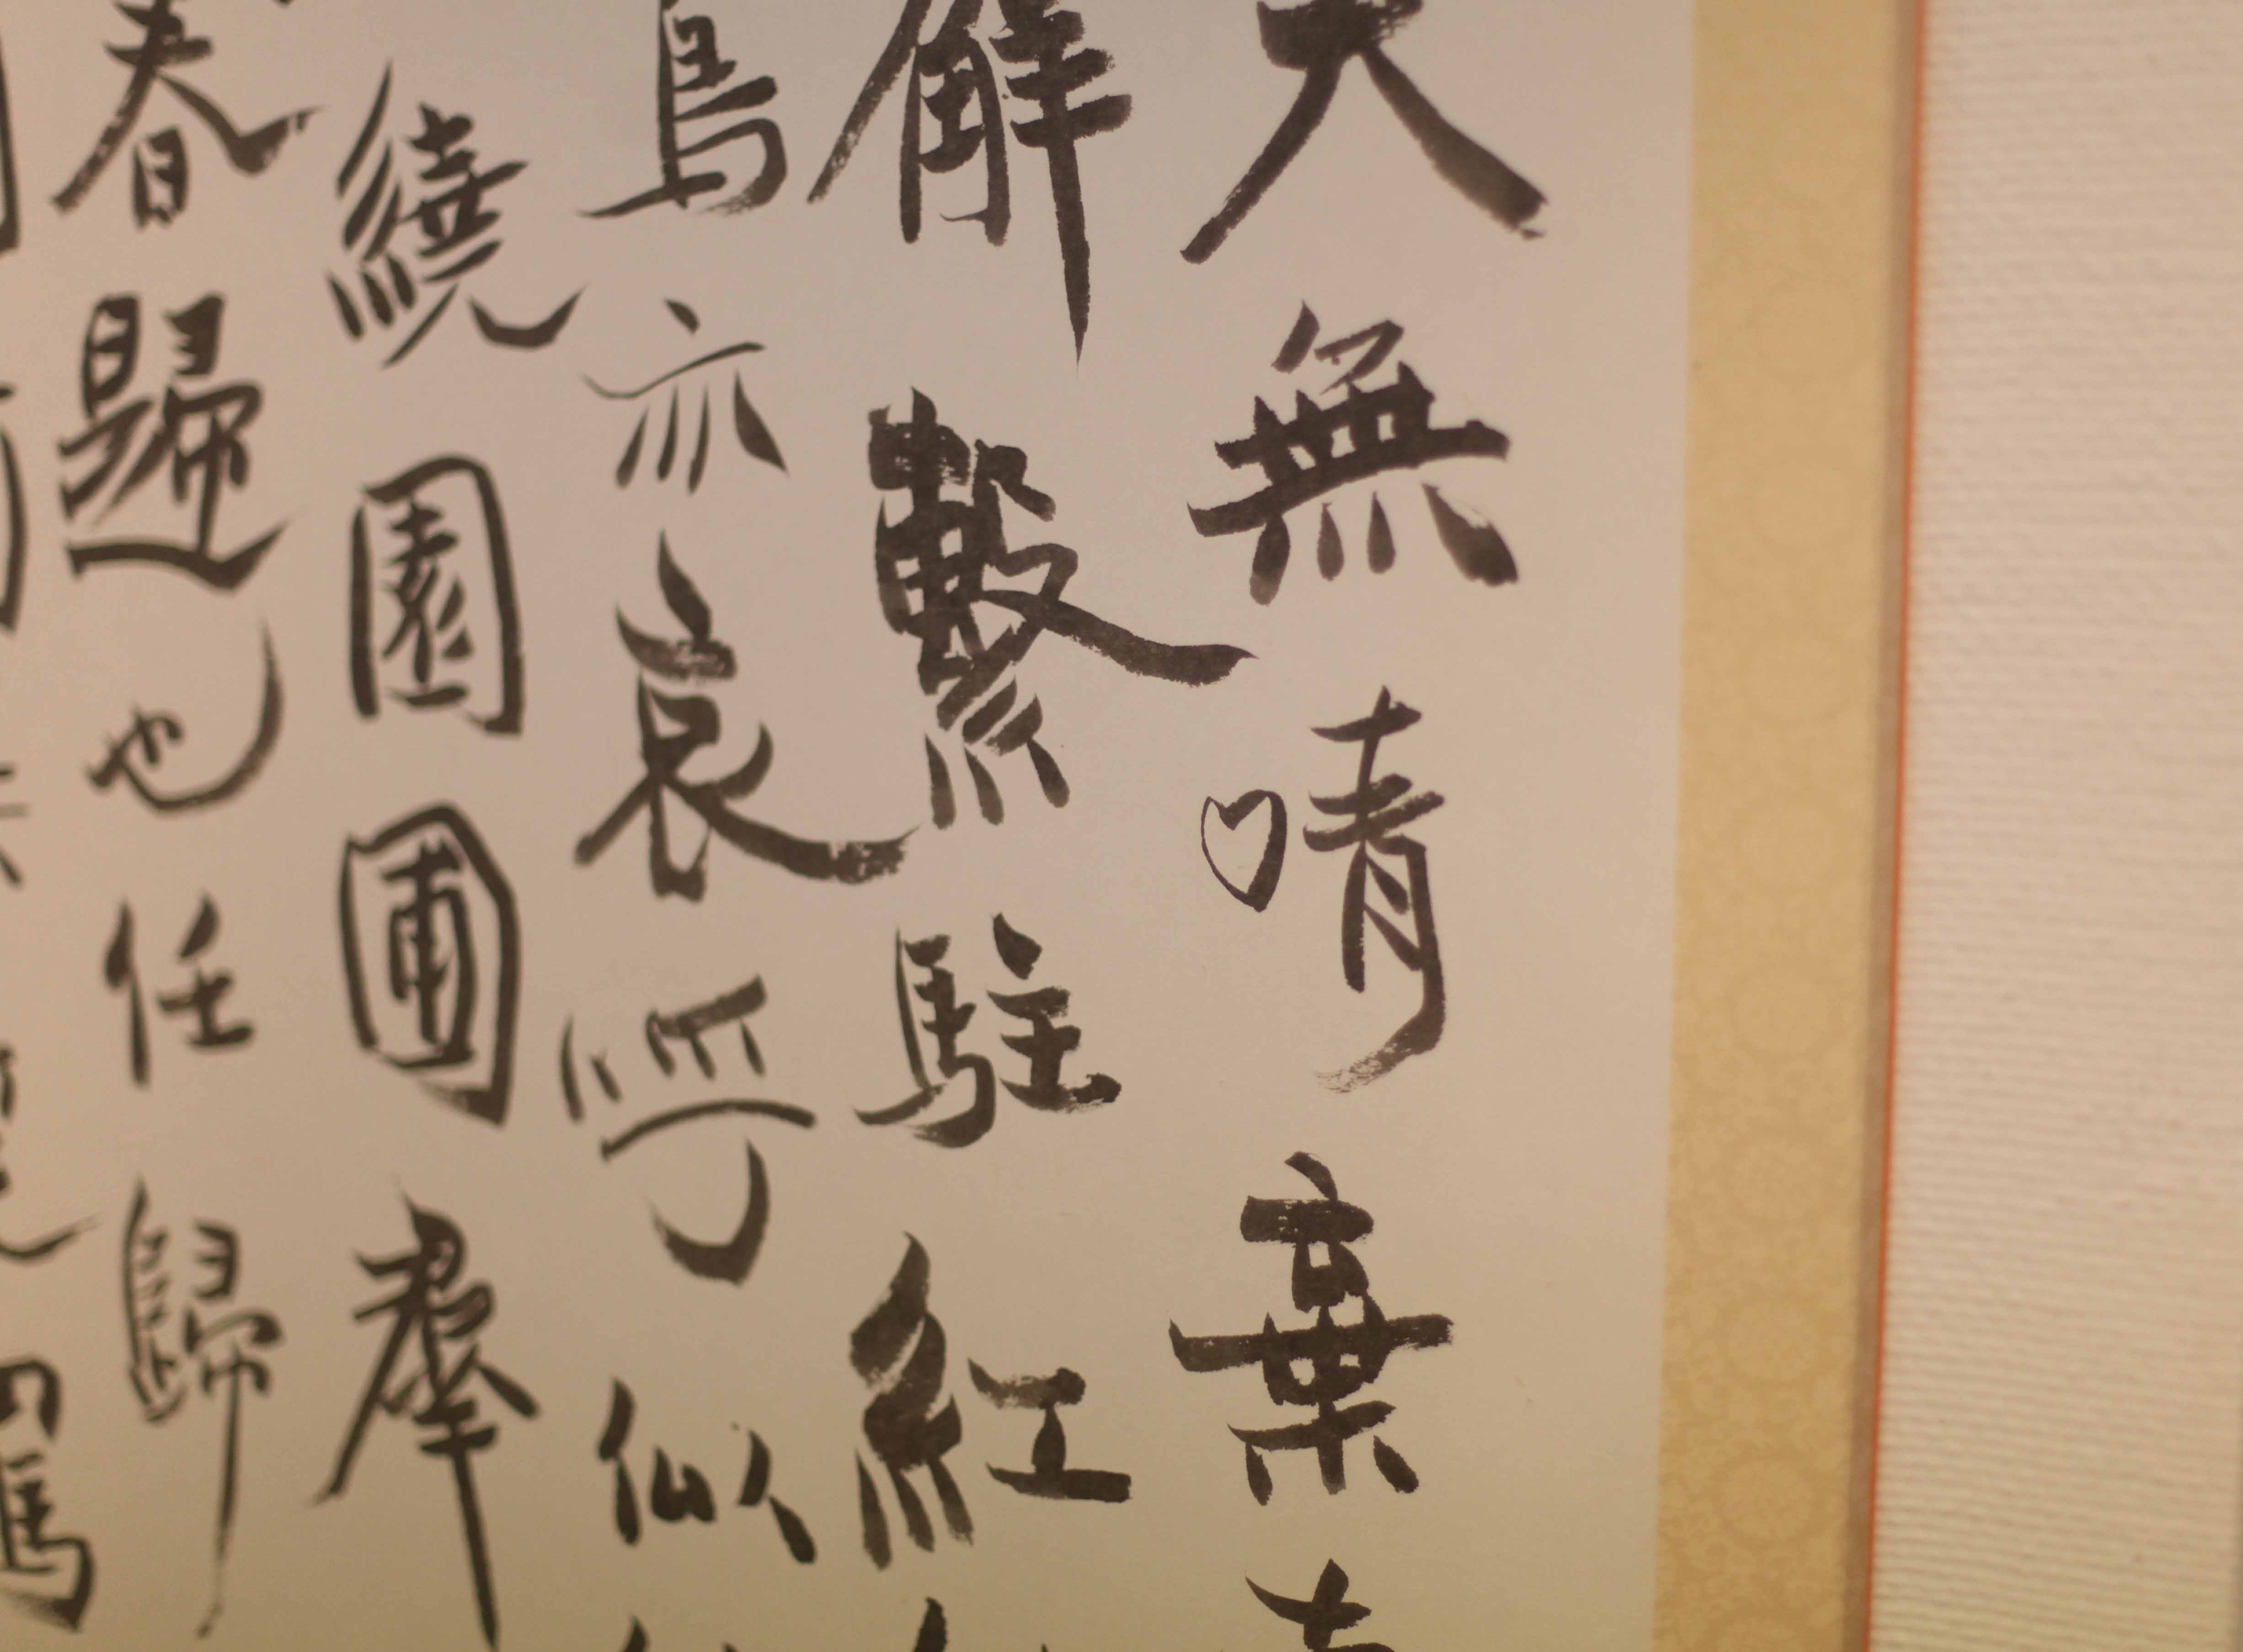 天無晴棄
解繫駐紅
鳥亦哀呼似
繞園圃羣
春歸也任歸